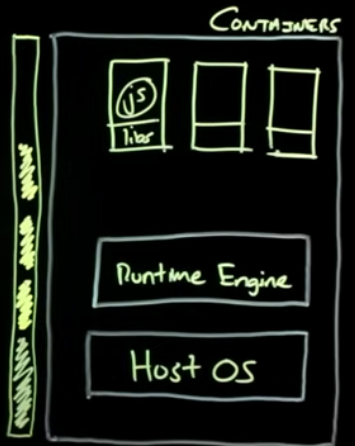 CONTAINERS
js
libs
Runtime Engine
Host OS